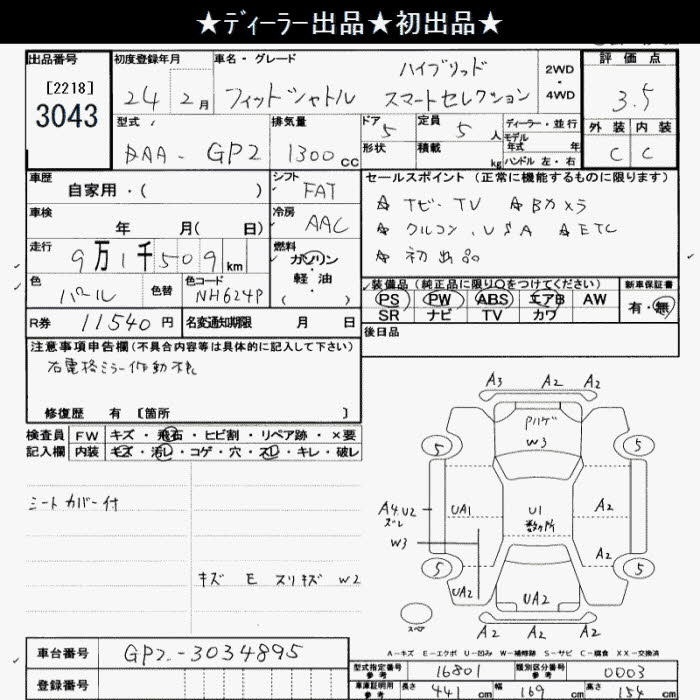 ★ディーラー出品★初出品★
出品番号
[2218]
3043
初度登録年月
24 2月
車名・グレード
ハイブリッド
フィットシャトル スマートセレクション
2WD・4WD
評価点
3.5
外装 内装
C C
型式
DAA-GP2
排気量
1300cc
ドア 5
形状
定員 5人
積載 kg
ディーラー・並行
モデル年式 年
ハンドル 左・右
車歴
自家用・( )
シフト
FAT
車検
年 月( 日)
冷房
AAC
走行
9万1千509km
燃料
ガソリン・軽油・( )
色
パール
色替
色コード
NH624P
R券 11540円
名変通知期限 月 日
セールスポイント (正常に機能するものに限ります)
☆ ナビ・TV ☆ Bカメラ
☆ クルコン・USA ☆ ETC
☆ 初出品
装備品 (純正品に限り○をつけてください)
PS PW ABS エアB AW
SR ナビ TV カワ
新車保証書
有・無
後日品
注意事項申告欄(不具合内容等は具体的に記入して下さい)
右電格ミラー作動不良
修復歴 有 [箇所 ]
検査員記入欄
FW キズ・飛石・ヒビ割・リペア跡・×要
内装 キズ・汚レ・コゲ・穴・スレ・キレ・破レ
シートカバー付
キズ E スリキズ W2
A3 A2 A2
Pハゲ
W3
5 5
A4.U2
ズレ
UA1
U1
数ヶ所
A2
W3
A2
5 5
UA2 UA2
A2 A2 A2
スペア
A-キズ E-エクボ U-凹み W-補修跡 S-サビ C-腐食 XX-交換済
車台番号 GP2-3034895
登録番号
型式指定番号 参考 16801
類別区分番号 参考 0003
車庫証明用 参考 長さ 441cm 幅 169cm 高さ 154cm